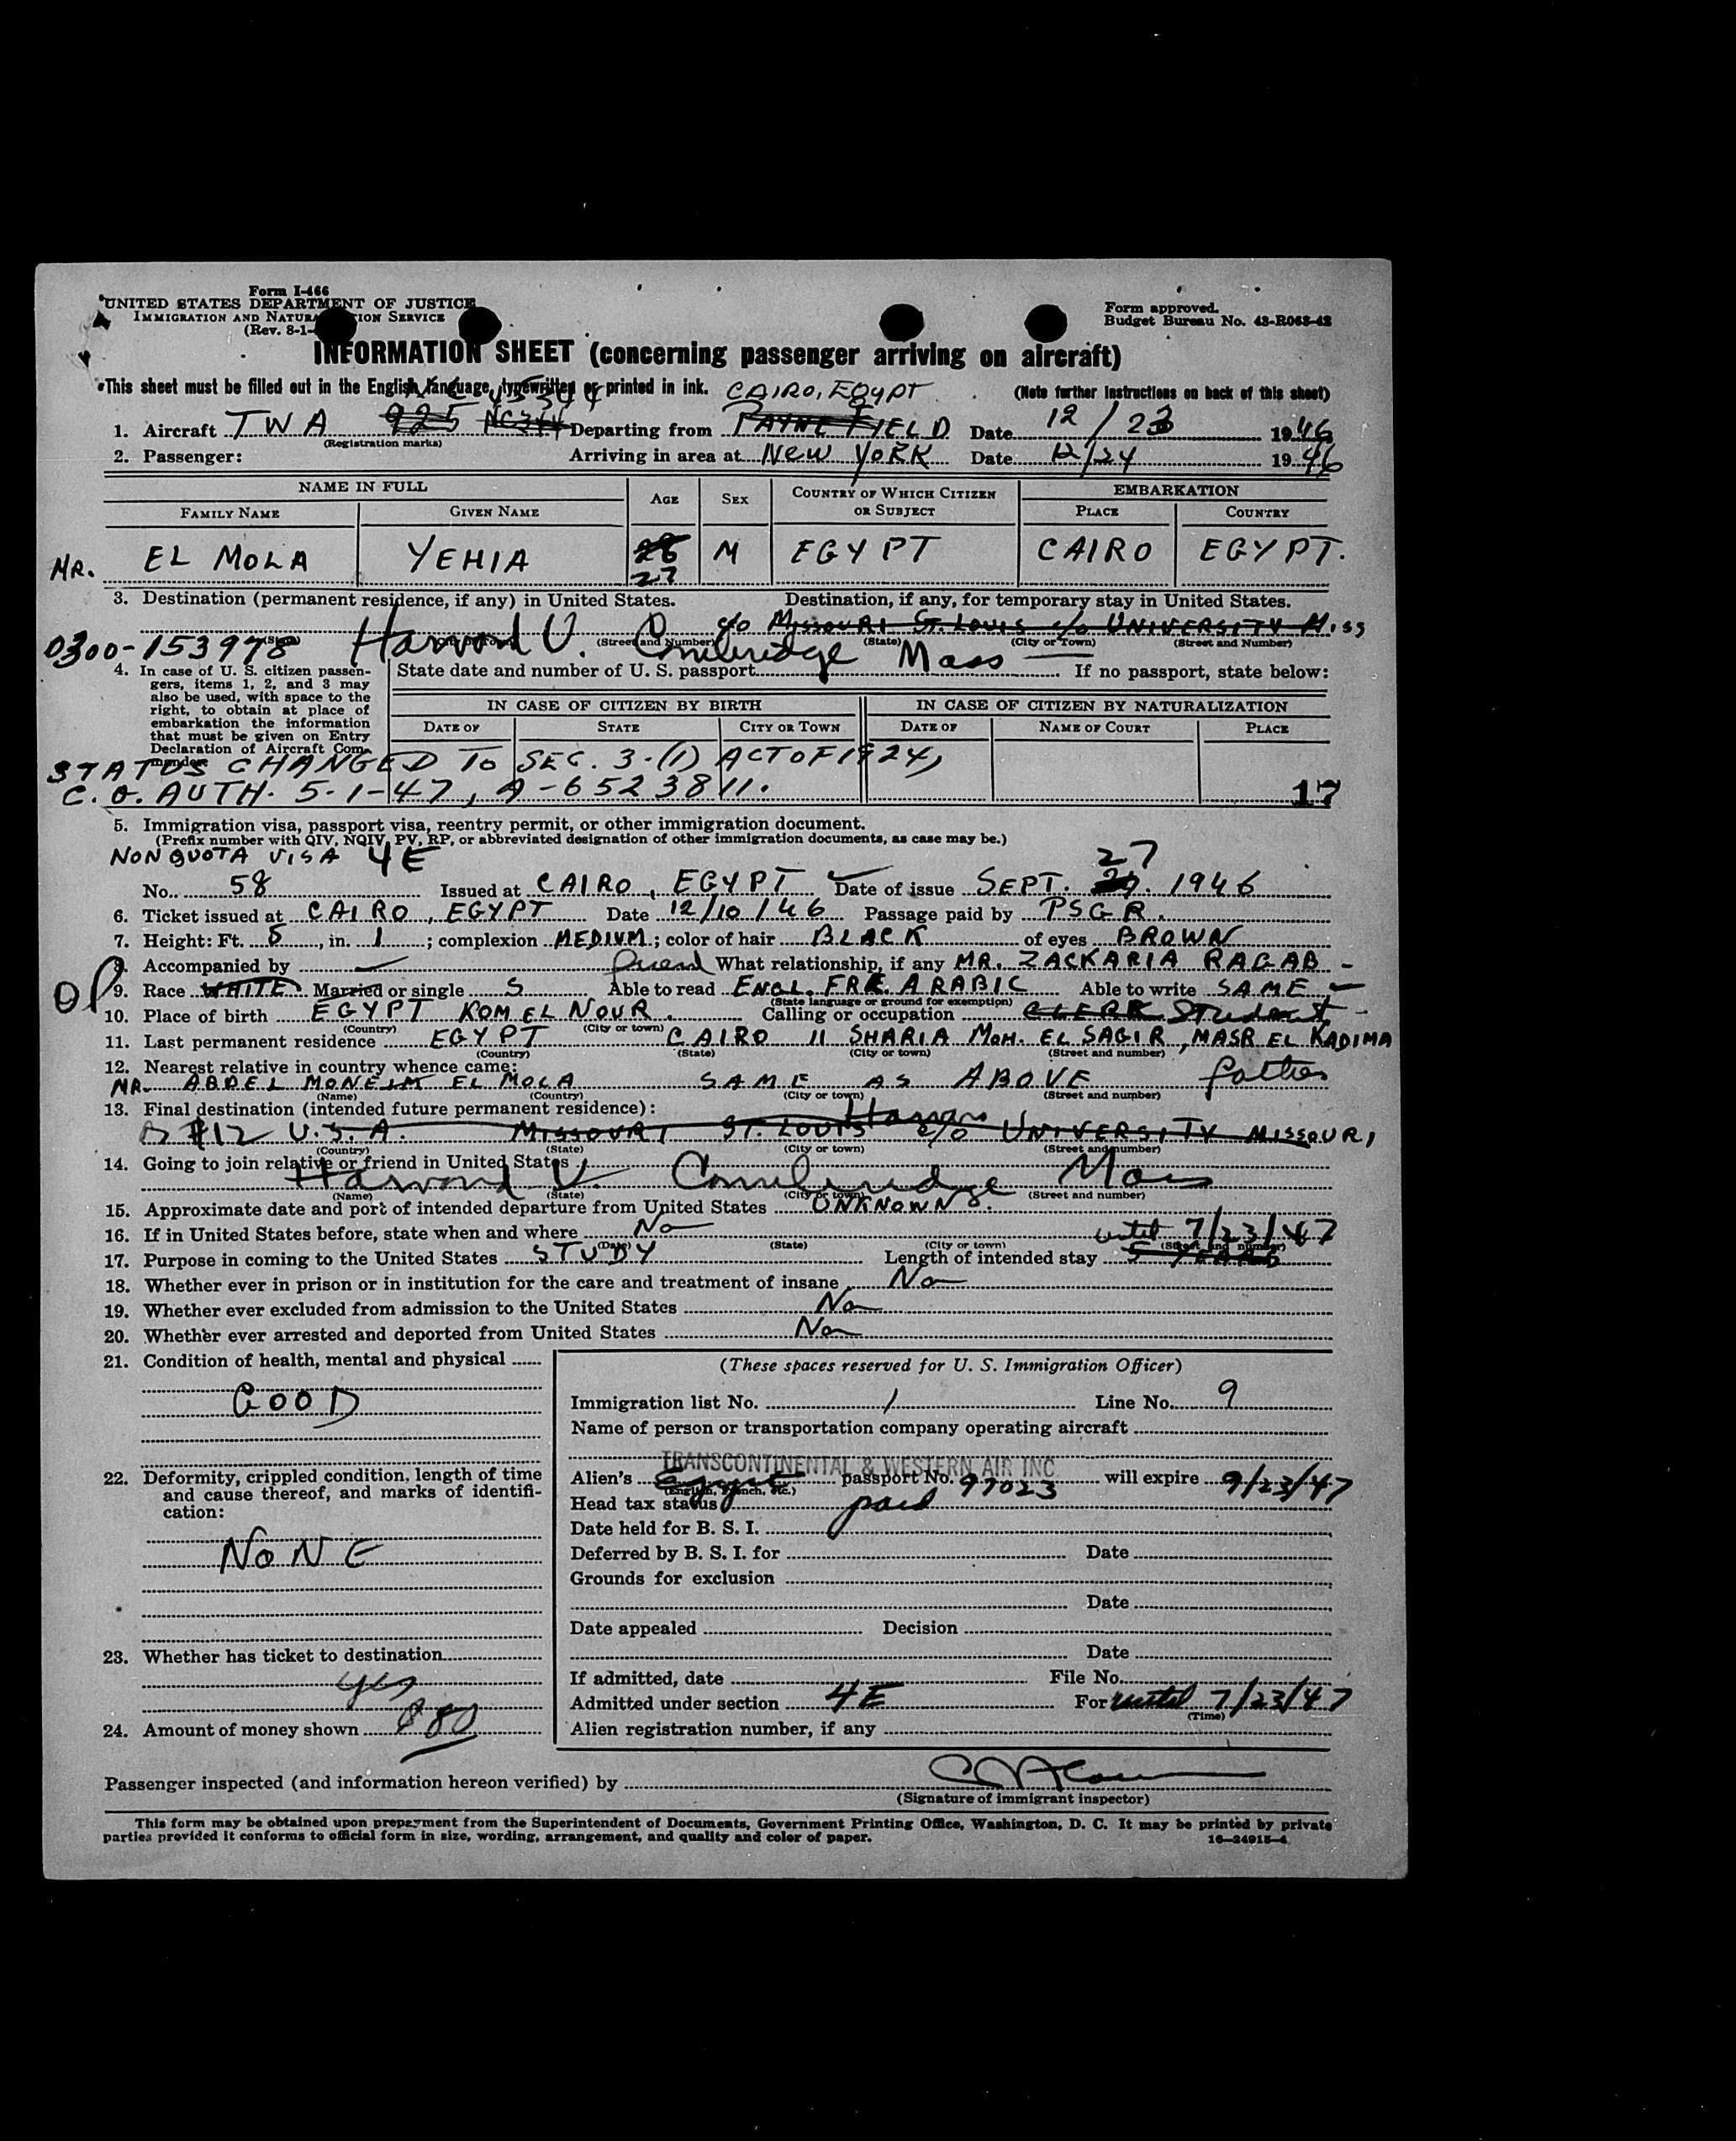 Form I-466
UNITED STATES DEPARTMENT OF JUSTICE
IMMIGRATION AND NATURALIZATION SERVICE
(Rev. 8-1-
Form approved.
Budget Bureau No. 43-R063-42
INFORMATION SHEET (concerning passenger arriving on aircraft)
This sheet must be filled out in the English language, typewritten or printed in ink.
(Note further instructions on back of this sheet)
CAIRO, EGYPT
1. Aircraft TWA 925 NC344 Departing from PAYNE FIELD Date 12/23 1946
(Registration marks)
2. Passenger: Arriving in area at NEW YORK Date 12/24 1946
NAME IN FULL AGE SEX COUNTRY OF WHICH CITIZEN OR SUBJECT EMBARKATION
FAMILY NAME GIVEN NAME PLACE COUNTRY
MR. EL MOLA YEHIA 28 M EGYPT CAIRO EGYPT.
27
3. Destination (permanent residence, if any) in United States. Destination, if any, for temporary stay in United States.
c/o MISSOURI ST. LOUIS c/o UNIVERSITY MISS
(State) (City or Town) (Street and Number) (State) (City or Town) (Street and Number)
0300-153978 Harvard U. Cambridge Mass
4. In case of U. S. citizen passengers, items 1, 2, and 3 may also be used, with space to the right, to obtain at place of embarkation the information that must be given on Entry Declaration of Aircraft Commander.
State date and number of U. S. passport If no passport, state below:
IN CASE OF CITIZEN BY BIRTH IN CASE OF CITIZEN BY NATURALIZATION
DATE OF STATE CITY OR TOWN DATE OF NAME OF COURT PLACE
STATUS CHANGED TO SEC. 3-(1) ACT OF 1924,
C. O. AUTH. 5-1-47, A-6523811.
17
5. Immigration visa, passport visa, reentry permit, or other immigration document.
(Prefix number with QIV, NQIV, PV, RP, or abbreviated designation of other immigration documents, as case may be.)
NON QUOTA VISA 4E
27
No. 58 Issued at CAIRO, EGYPT Date of issue SEPT. 1946
6. Ticket issued at CAIRO, EGYPT Date 12/10/46 Passage paid by PSGR.
7. Height: Ft. 5, in. 1; complexion MEDIUM; color of hair BLACK of eyes BROWN
8. Accompanied by friend What relationship, if any MR. ZACKARIA RAGAB
9. Race WHITE Married or single S Able to read ENGL. FRE. ARABIC Able to write SAME
(State language or ground for exemption)
10. Place of birth EGYPT KOM EL NOUR Calling or occupation CLERK Student
(Country) (City or town)
11. Last permanent residence EGYPT CAIRO 11 SHARIA MOH. EL SAGIR, MASR EL KADIMA
(Country) (State) (City or town) (Street and number)
12. Nearest relative in country whence came:
MR. ABDEL MONEIM EL MOLA SAME AS ABOVE father
(Name) (Country) (City or town) (Street and number)
13. Final destination (intended future permanent residence):
#12 U.S.A. MISSOURI ST. LOUIS c/o UNIVERSITY MISSOURI
(Country) (State) (City or town) (Street and number)
14. Going to join relative or friend in United States
Harvard U Cambridge Mass
(Name) (State) (City or town) (Street and number)
15. Approximate date and port of intended departure from United States UNKNOWN
16. If in United States before, state when and where No
(Date) (State) (City or town) (Street and number)
until 7/23/47
17. Purpose in coming to the United States STUDY Length of intended stay 5 YEARS
18. Whether ever in prison or in institution for the care and treatment of insane No
19. Whether ever excluded from admission to the United States No
20. Whether ever arrested and deported from United States No
21. Condition of health, mental and physical
GOOD
22. Deformity, crippled condition, length of time and cause thereof, and marks of identification:
NONE
23. Whether has ticket to destination
yes
24. Amount of money shown 880
(These spaces reserved for U. S. Immigration Officer)
Immigration list No. 1 Line No. 9
Name of person or transportation company operating aircraft
TRANSCONTINENTAL & WESTERN AIR INC
Alien's Egypt passport No. 97023 will expire 9/23/47
(English, French, etc.)
Head tax status paid
Date held for B. S. I.
Deferred by B. S. I. for Date
Grounds for exclusion
Date
Date appealed Decision
Date
If admitted, date File No.
Admitted under section 4E For until 7/23/47
(Time)
Alien registration number, if any
Passenger inspected (and information hereon verified) by
(Signature of immigrant inspector)
This form may be obtained upon prepayment from the Superintendent of Documents, Government Printing Office, Washington, D. C. It may be printed by private
parties provided it conforms to official form in size, wording, arrangement, and quality and color of paper.
16-24915-4